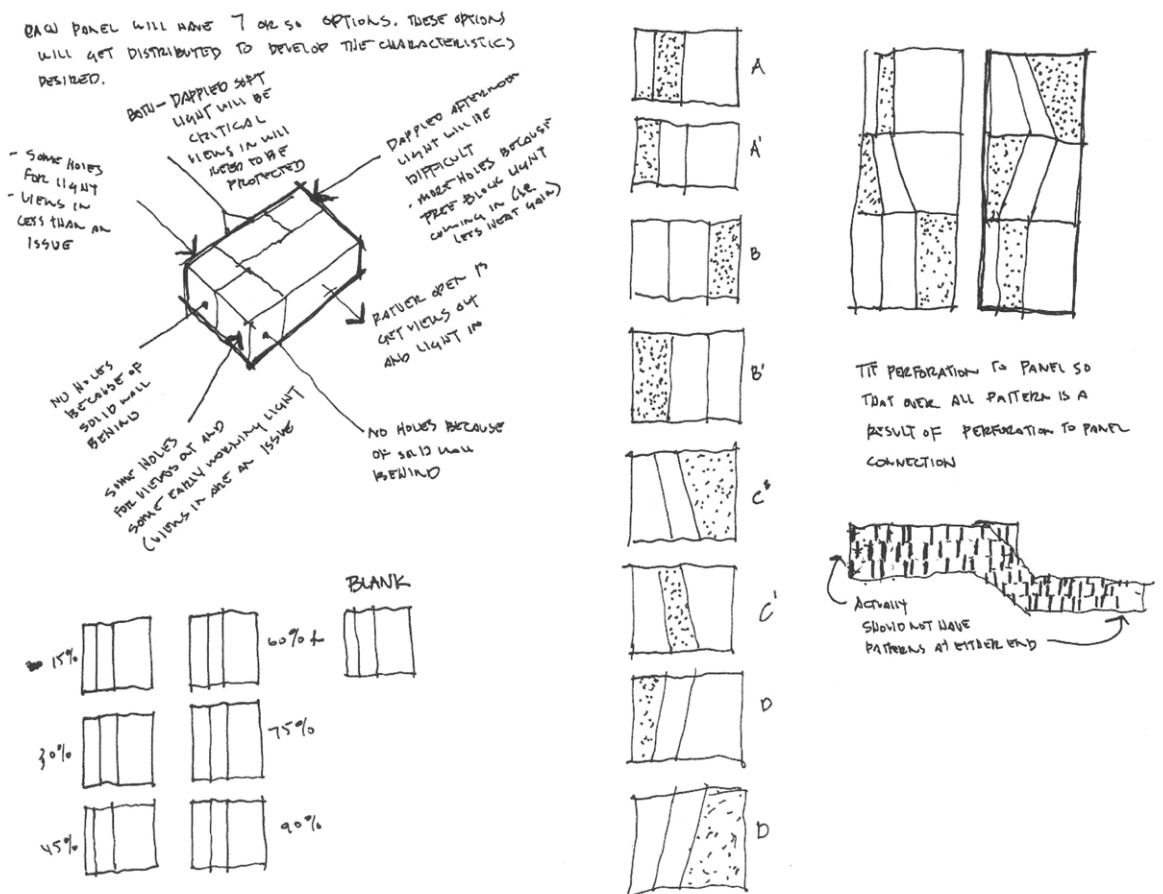 EACH PANEL WILL HAVE 7 OR SO OPTIONS. THESE OPTIONS
WILL GET DISTRIBUTED TO DEVELOP THE CHARACTERISTICS
DESIRED.
BOTH - DAPPLED SOFT
LIGHT WILL BE
CRITICAL
VIEWS IN WILL
NEED TO BE
PROTECTED
DAPPLED AFTERNOON
LIGHT WILL BE
DIFFICULT
- MORE HOLES BECAUSE
TREE BLOCK LIGHT
COMING IN (IE
LETS HEAT GAIN)
- SOME HOLES
FOR LIGHT
- VIEWS IN
LESS THAN AN
ISSUE
RATHER OPEN TO
GET VIEWS OUT
AND LIGHT IN
NO HOLES
BECAUSE OF
SOLID WALL
BEHIND
SOME HOLES
FOR VIEWS OUT AND
SOME EARLY MORNING LIGHT
(VIEWS IN ARE AN ISSUE
NO HOLES BECAUSE
OF SOLID WALL
BEHIND
BLANK
15%
60%
30%
75%
45%
90%
A
A'
B
B'
C'
D
D
TIE PERFORATION TO PANEL SO
THAT OVER ALL PATTERN IS A
RESULT OF PERFORATION TO PANEL
CONNECTION
ACTUALLY
SHOULD NOT HAVE
PATTERNS AT EITHER END